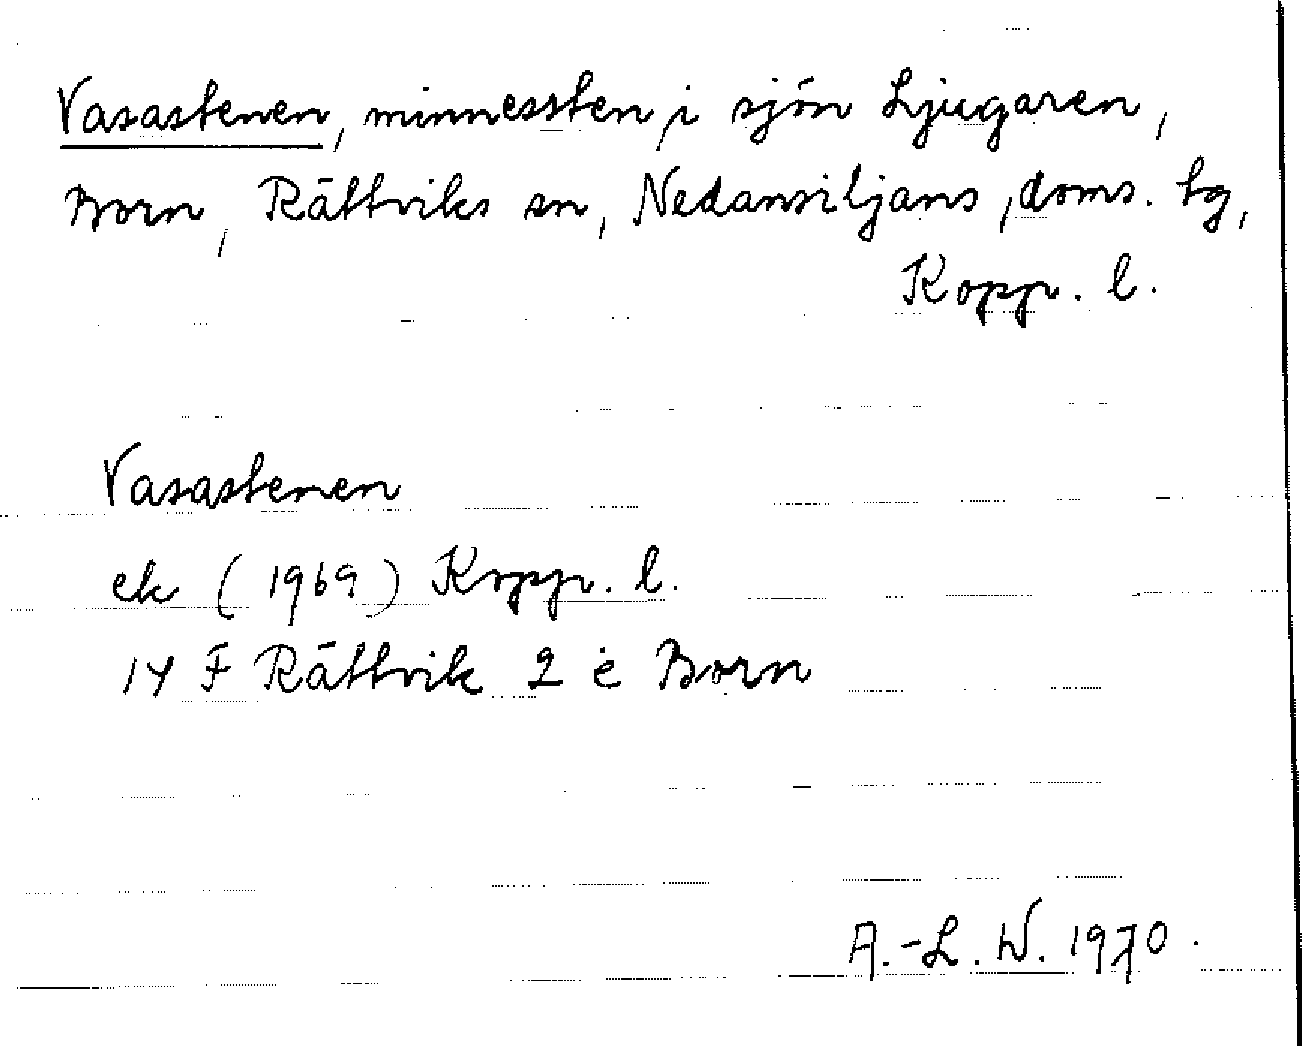 Vasastenen, minnessten, i sjön Ljugaren,
Born, Rättviks sn, Nedansiljans, doms. tg,
Kopp. l.
Vasastenen
ek (1969) Kopp. l.
14 F Rättvik 2 e Born
A.-L. W. 1970.